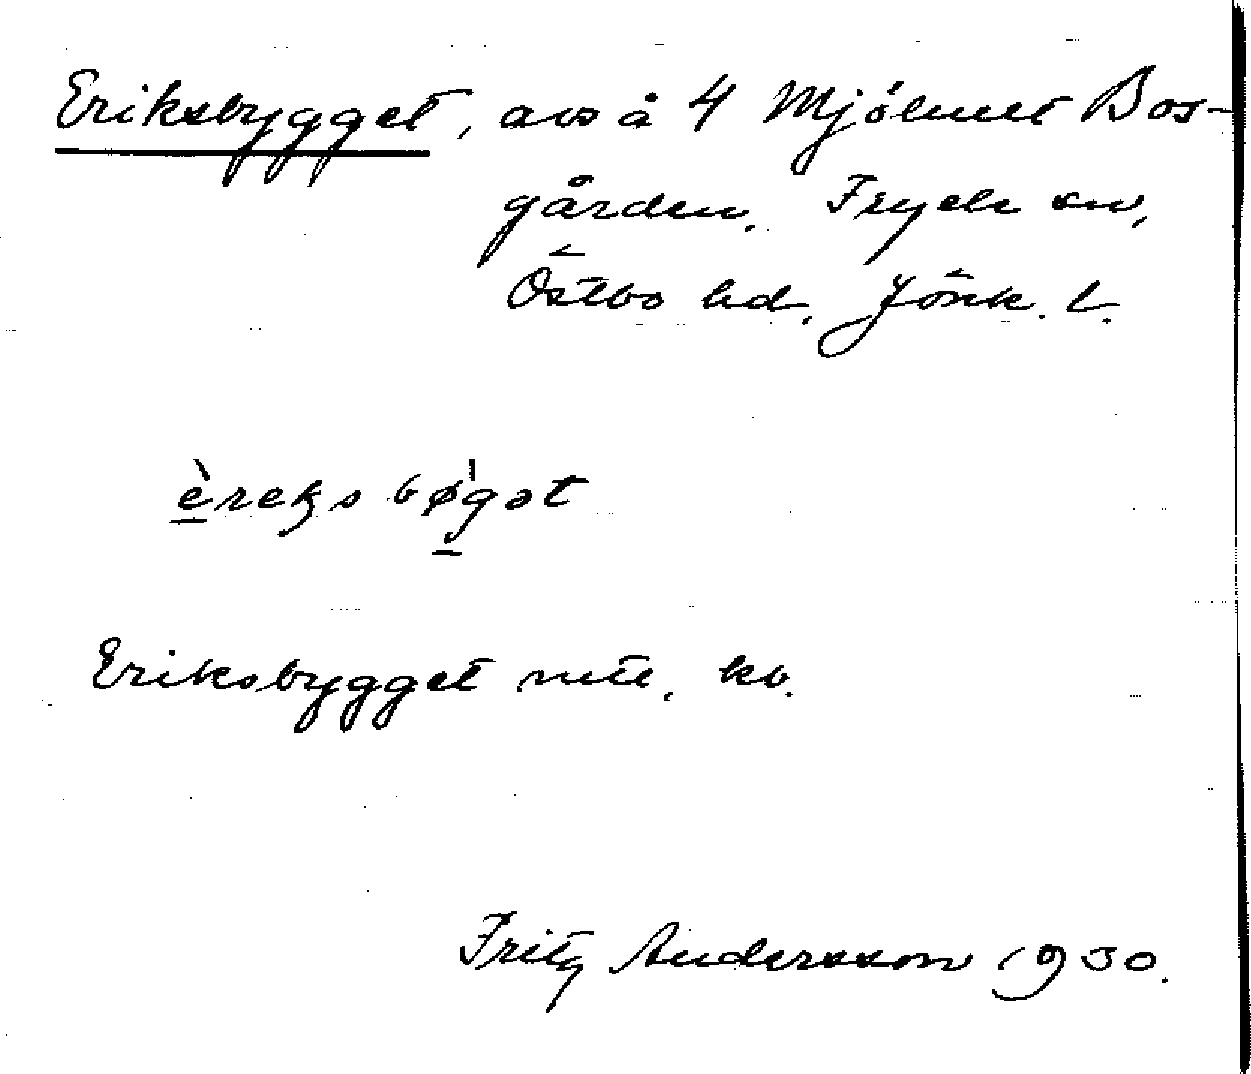 Eriksbygget, avs å 4 Mjölmet Bos-
gården. Fryele sn,
Östbo hd. Jönk. l.
èreks bø̍gət
Eriksbygget mtl. kb.
Fritz Andersson 1930.